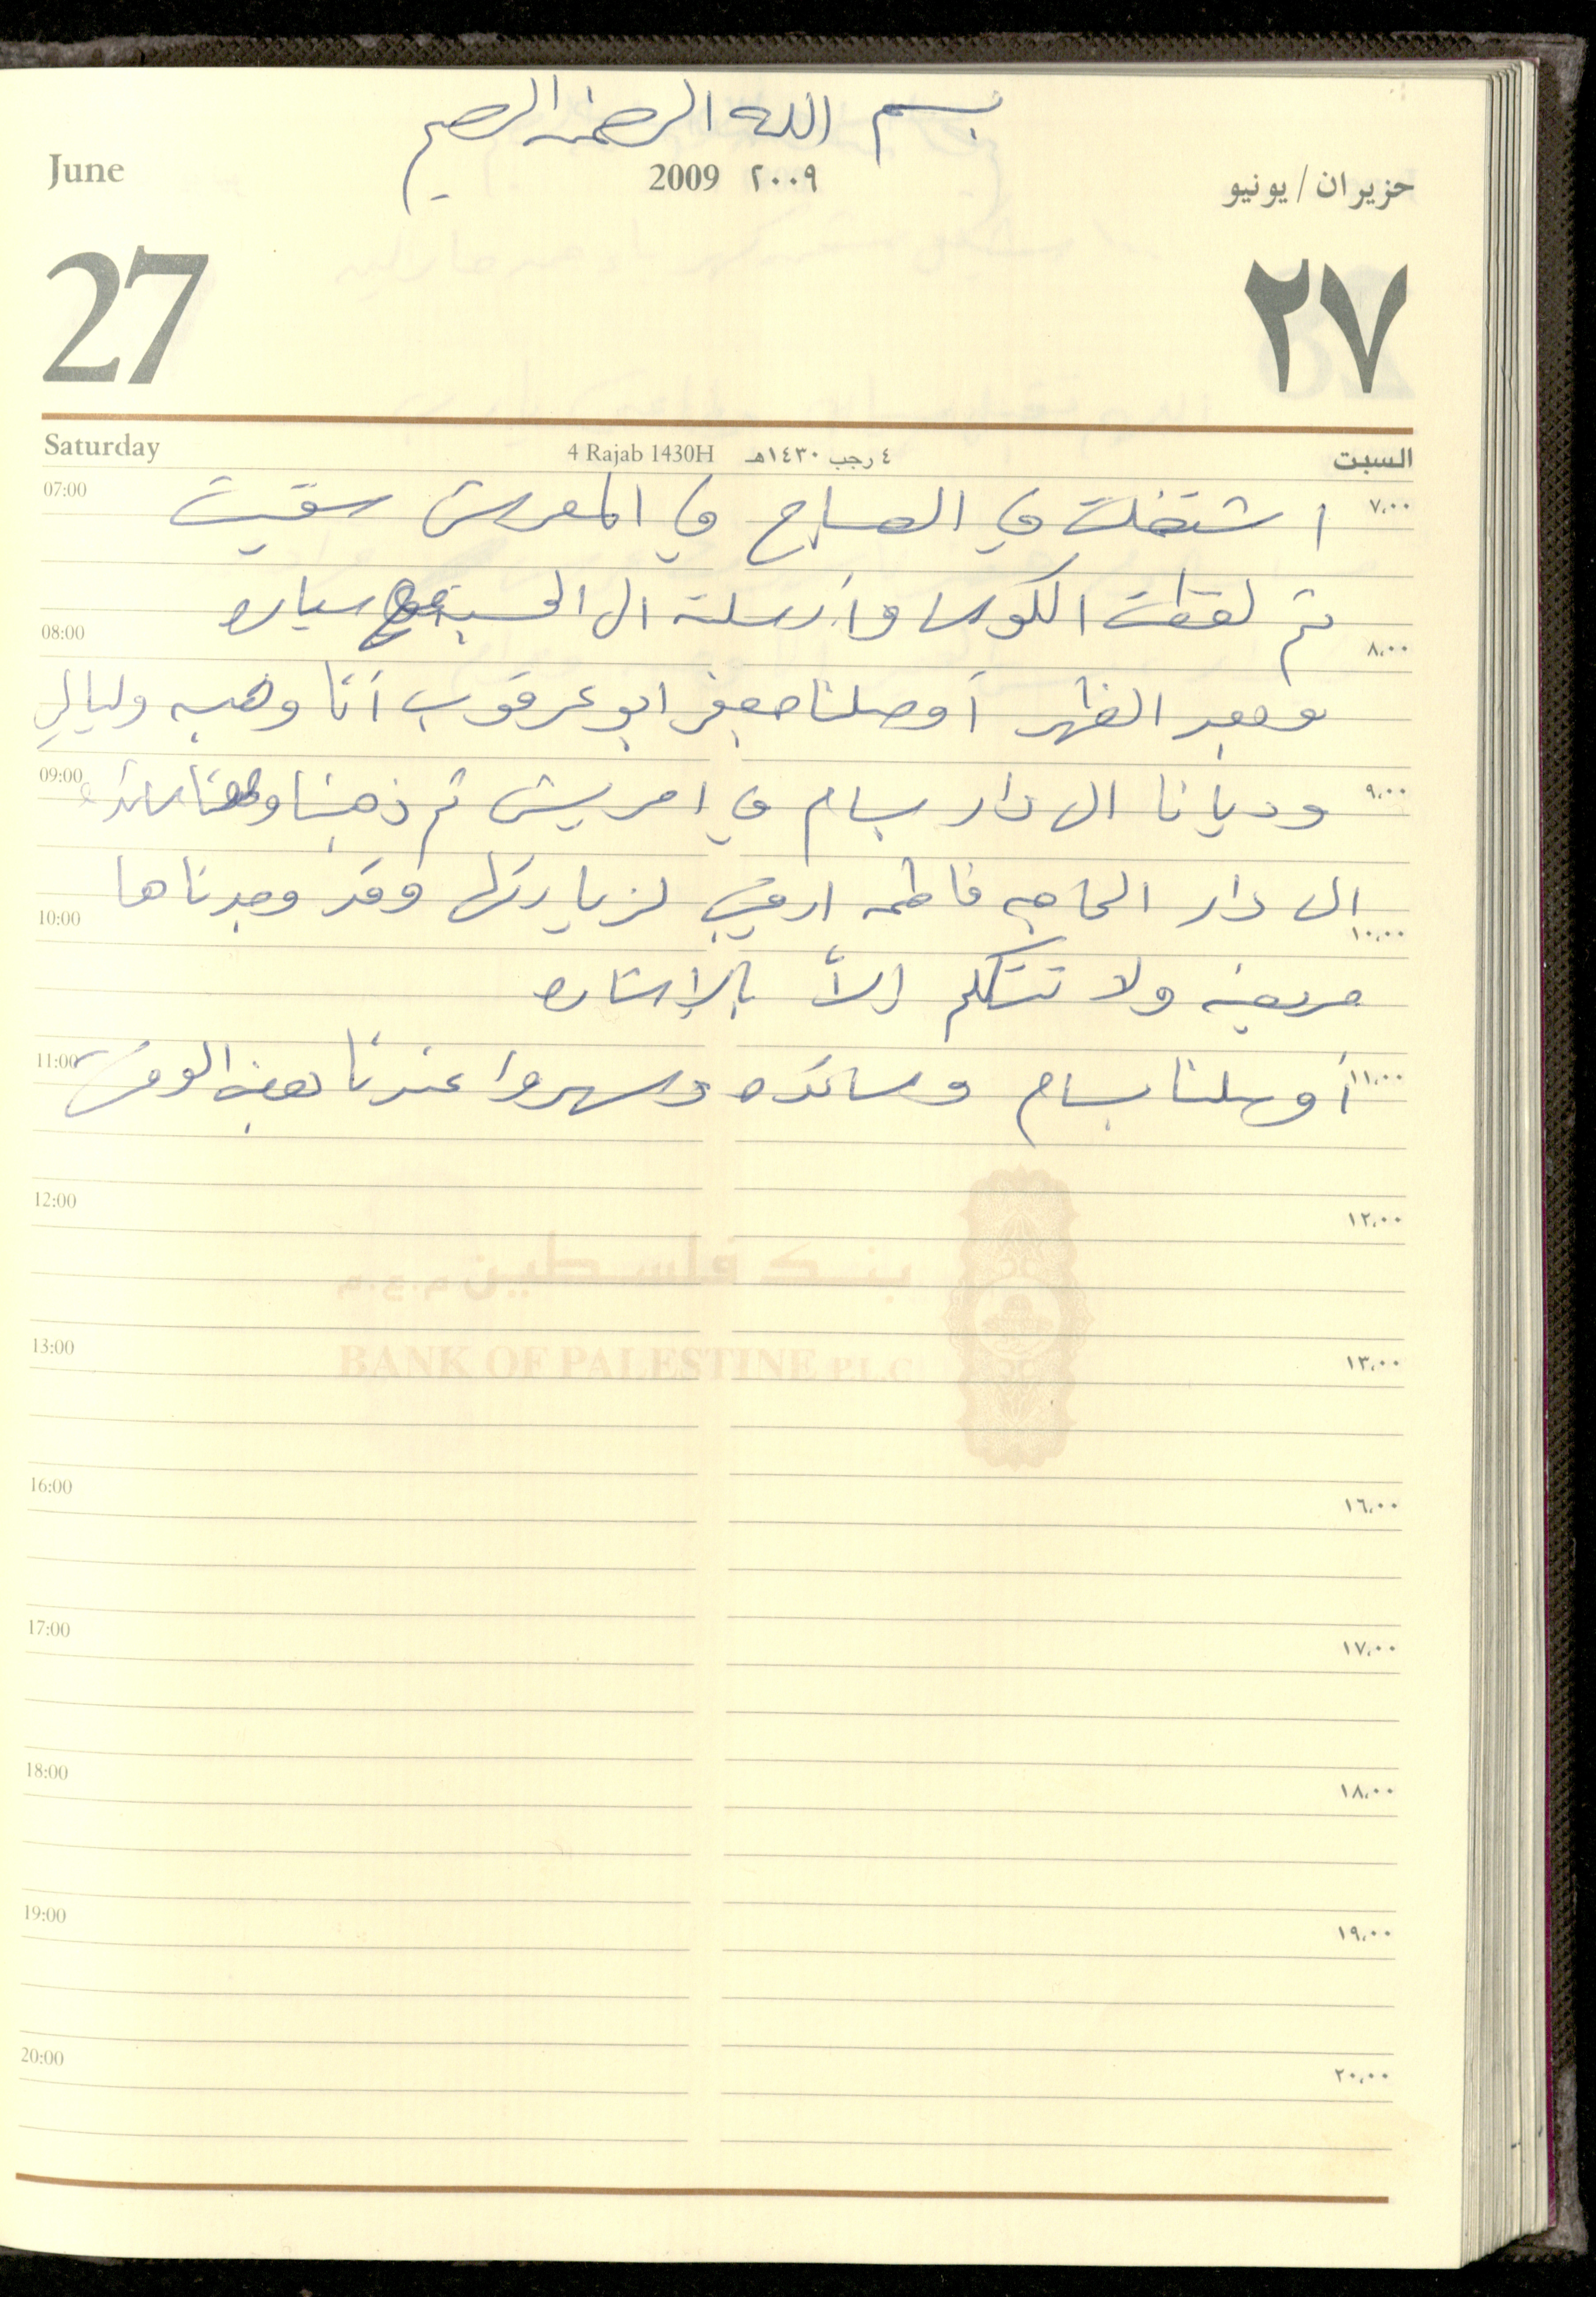 بسم الله الرحمن الرحيم
June 2009 ٢٠٠٩ حزيران / يونيو
27 ٢٧
Saturday 4 Rajab 1430H ٤ رجب ١٤٣٠هـ السبت
07:00 اشتغلت في الصباح في المعرش سقيت ٧،٠٠
ثم لقطت الكوسا وأرسلته الى الحسبة مع سياره
08:00 ٨،٠٠
وبعد الظهر أوصلنا جعفر ابو عرقوب أنا وهبه وليالي
09:00 وديانا الى دار بسام في امريش ثم ذهبنا سائده ٩،٠٠
الى دار الحاجه فاطمه لزيارتها وقد وجدناها
10:00 ١٠،٠٠
مريضه ولا تتكلم إلاّ بالإشاره
11:00 أوصلنا بسام وسائده وسهروا عندنا بعض الوقت ١١،٠٠
12:00 ١٢،٠٠
بنك فلسطين م.ع.م
13:00 ١٣،٠٠
BANK OF PALESTINE P.L.C
16:00 ١٦،٠٠
17:00 ١٧،٠٠
18:00 ١٨،٠٠
19:00 ١٩،٠٠
20:00 ٢٠،٠٠